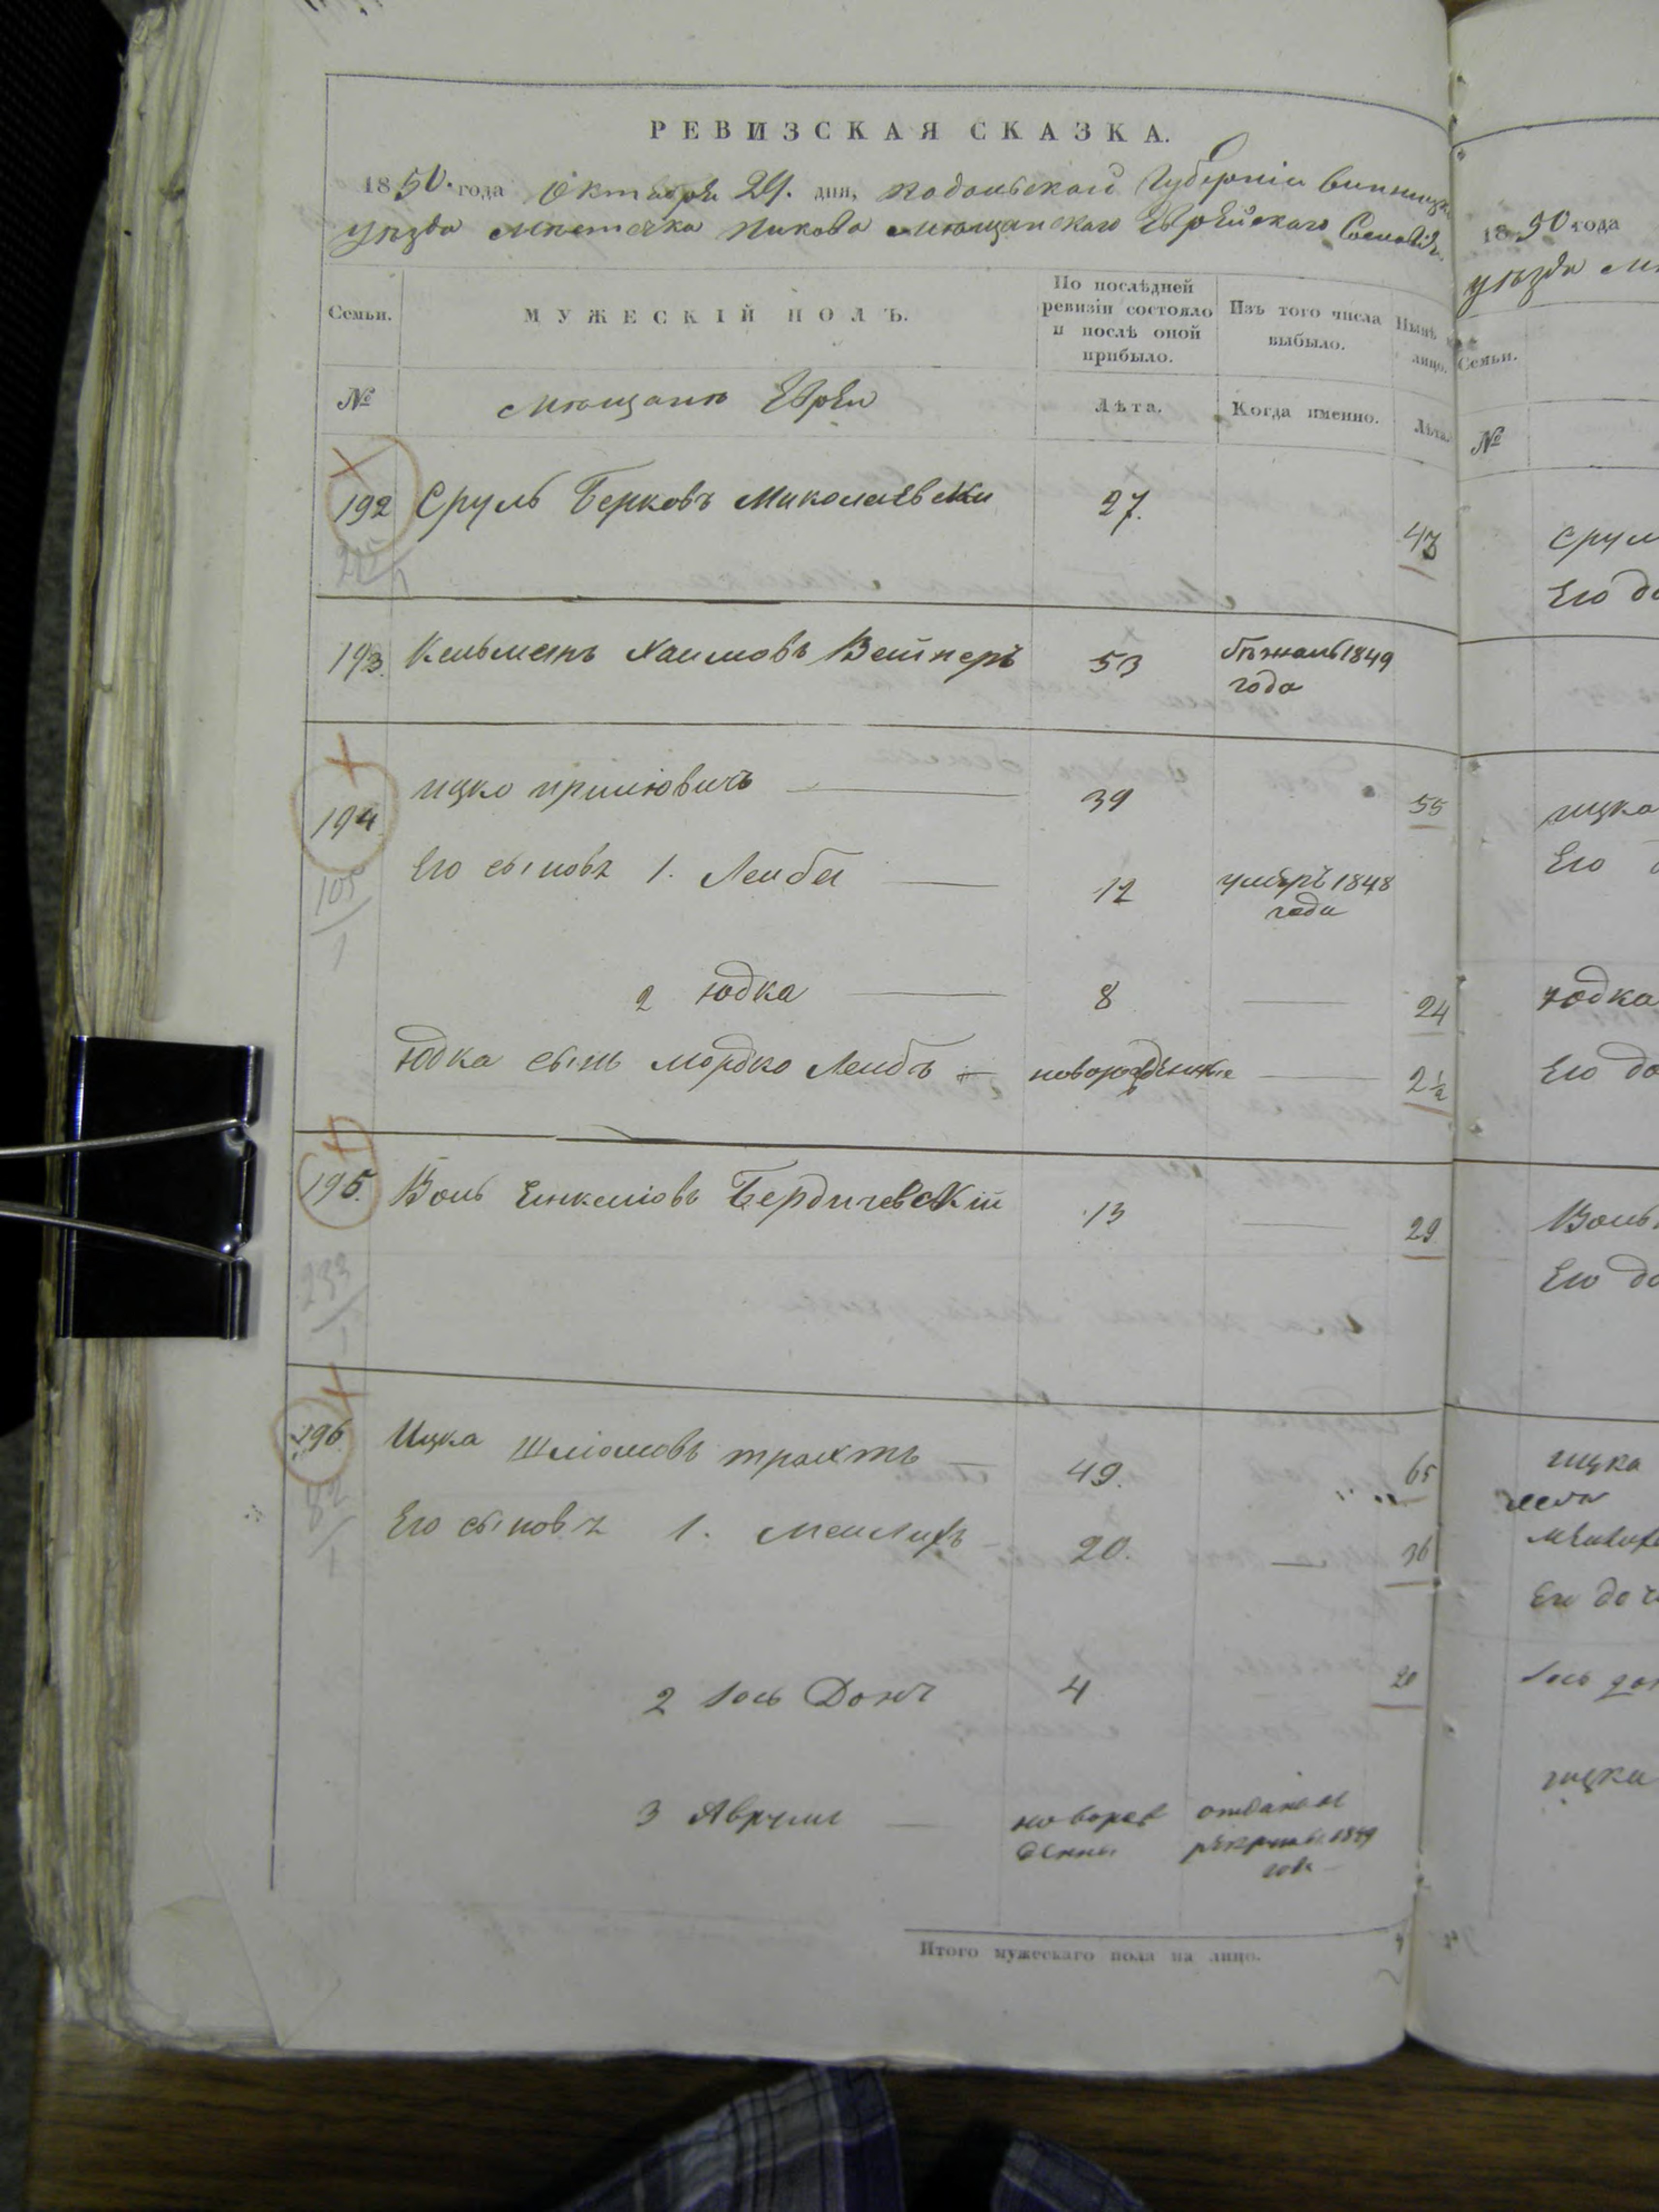 РЕВИЗСКАЯ СКАЗКА.
1850 года Октября 29. дня, Подольской Губерніи Винницк
уѣзда мѣстечка Пикова мѣщанскаго Еврейскаго
Семьи.
МУЖЕСКІЙ ПОЛЪ.
По послѣдней ревизіи состояло и послѣ оной прибыло.
Изъ того числа выбыло.
Нынѣ на лицо.
№
мѣщане Евреи
Лѣта.
Когда именно.
Лѣта.
192 Сруль Берковъ Миколаевски 27. 47
193. Кельманъ Хаимовъ Вейнеръ 53 бѣжалъ 1849
года
194 ицко 39 55
105
1
Его сыновъ 1. Лейба 12 умеръ 1848
года
2 Юдка 8 24
Юдка сынъ Мордко Лейбъ новорожденный 2½
195. Воль Бердичевскій 13 29
233
1
196 Ицка Шлiомовъ трахтъ 49. 65
82
1
Его сыновъ 1. Мейлихъ 20. 36
2 Іось Донъ 4 20
3 Аврумъ новорож
денны отданъ
рекруты 1849
года
Итого мужескаго пола на лицо.
1850 года
уѣзда
Семьи.
№
Срул
Его до
ицка
Его
Юдка
Его до
Воль
Его до
ицка
Его доч
Іось
ицка